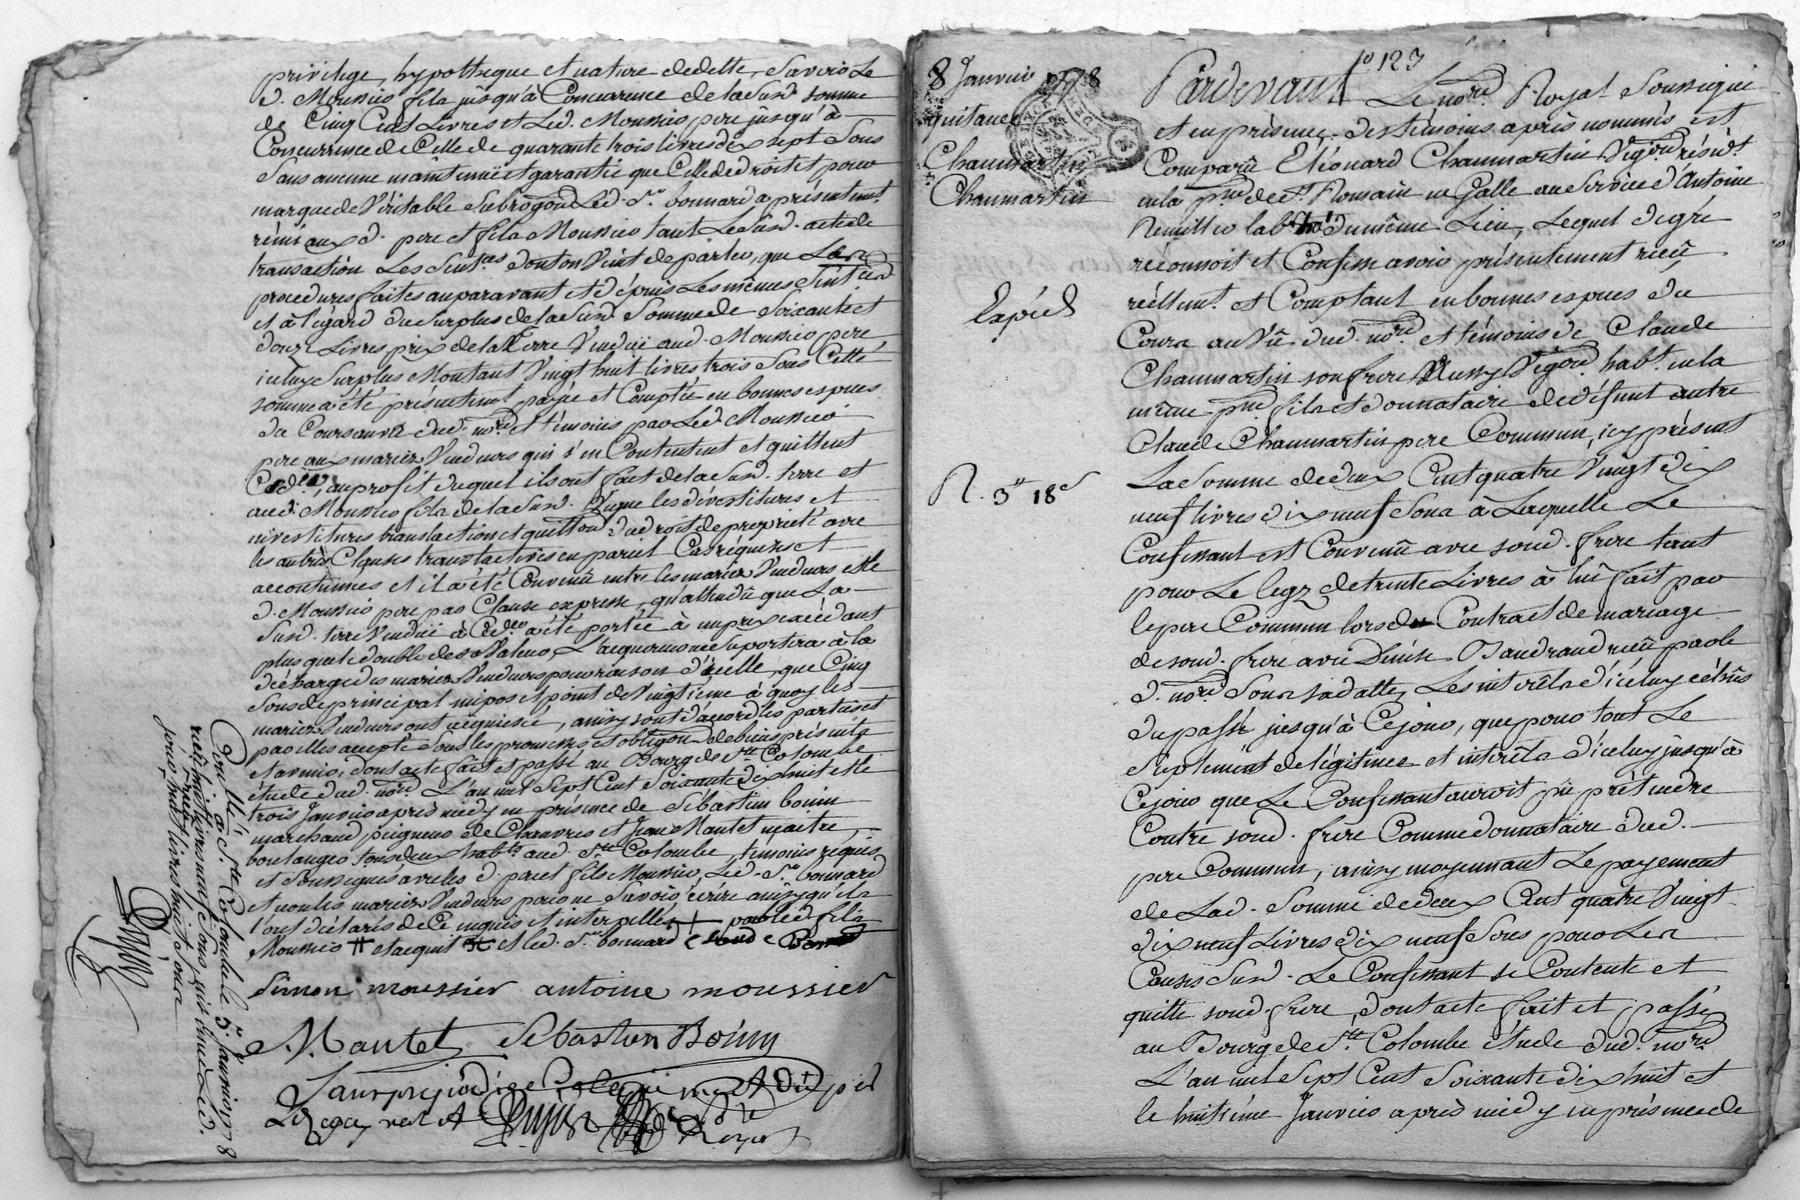 privilege, hypotheque et nature de dette, Savoir Le
d. Moussier fils jusqu'à Concurrence de la Susd. somme
de Cinq Cent Livres et Led. Moussier pere jusqu'à
Concurrence de Celle de quarante trois livres dix sept Sous
Sans aucune maintenüe et garantie que Celle de droit et pour
marque de Véritable Subrogaon Led. Sr. bonnard a présentemt.
rémis aux d. pere et fils Moussier tant Le Susd. acte de
transaction Les Sentces dont on Vient de parler, que Les
procedures faites auparavant et dépuis Les mêmes Sentces
et à l'égard du Surplus de la Susd. Somme de Soixante et
douze Livres prix de la Terre Venduë aud. Moussier pere,
iceluy Surplus Montant Vingt huit livres trois Sous Cette
somme a été présentemt. payée et Comptée en bonnes espèces
du Cours au vû dud. nore. et témoins par Led. Moussier
pere aux mariez Vendeurs qui s'en Contentent et quittent
au profit duquel ils ont fait de la Susd. terre et
aud. Moussier fils de la Susd. Vigne les dévestitures et
investitures translaction et quittaon du droit de proprieté avec
les autres Clauses translactives en pareil Cas réquises et
accoutumées et il a été Convenû entre les mariez Vendeurs et Le
d. Moussier pere par Clause expresse, qu'attendu que La
Susd. terre Venduë a été portée à un prix excédant
plus que le double de sa Valeur, L'acquereur ne Suportera à la
décharge des mariez Vendeurs pour raison d'icelle, que Cinq
Sous de principal impos et point de Vingtieme à quoy les
mariez Vendeurs ont acquiescé, ainsy sont d'accord les parties et
par elles accepté Sous les promesses et obligaon de biens présents
et avenir, dont acte fait et passé au Bourg de Ste. Colombe
étude dud. nore. L'an mil Sept Cent Soixante dix huit et le
trois Janvier après midy en présence de Sébastien bouin
marchand peigneur de Chanvres et Jean Mantet maitre
boulanger tous deux habts. aud. Ste. Colombe, témoins réquis
et Soussignés avec les d. pere et fils Moussier, Led. Sr. bonnard
et non les mariez Vendeurs pour ne Savoir écrire ainsy qu'ils
l'ont déclaré de Ce enquis et interpellés
Moussier et acquit et led. Sr. bonnard
Simon moussier antoine moussier
Mantet Sebastien Boüin
Sans préjudice
Royal
Conllé. à Ste Colombe le 5e. Janvier 1778
reçu huit livres neuf sous
8 Janvier 1778
quitance
Chaumartin
Chaumartin
Expédé
R. 3tt 18s
fo 123
Pardevant Le nore. Royal Soussigné
et en présence des témoins après nommés est
Comparû Eléonard Chaumartin Vigon. résidt.
en la psse de St. Romain en Galle au Service d'Antoine
Remillier labr. du même Lieu, Lequel de gré
réconnoit et Confesse avoir présentement réçû
réellemt. et Comptant en bonnes espèces du
Cours au Vû dud. nore. et témoins de Claude
Chaumartin son frere Aussy Vigon. habt. en la
même psse fils et donnataire de défunt autre
Claude Chaumartin pere Commun, icy présent
La Somme de deux Cent quatre Vingt dix
neuf livres dix neuf Sous à Laquelle Le
Confessant est Convenû avec sond. frere tant
pour Le legz de trente Livres à lui fait par
le pere Commun lors du Contract de mariage
de sond. frere avec Denise Baudrand réçû par le
d. nore. Sous sa datte, Les intérêts d'iceluy échûs
du passé jusqu'à Cejour, que pour tout Le
Suplément de légitime et intérêts d'iceluy jusqu'à
Cejour que Le Confessant auroit pû prétendre
Contre sond. frere Comme donnataire dud.
pere Commun, ainsy moyennant Le payement
de Lad. Somme de deux Cent quatre Vingt
dix neuf Livres dix neuf Sous pour Les
Causes Susd. Le Confessant se Contente et
quitte sond. frere, dont acte fait et passé
au Bourg de Ste. Colombe étude dud. nore.
L'an mil Sept Cent Soixante dix huit et
le huitième Janvier après midy en présence de